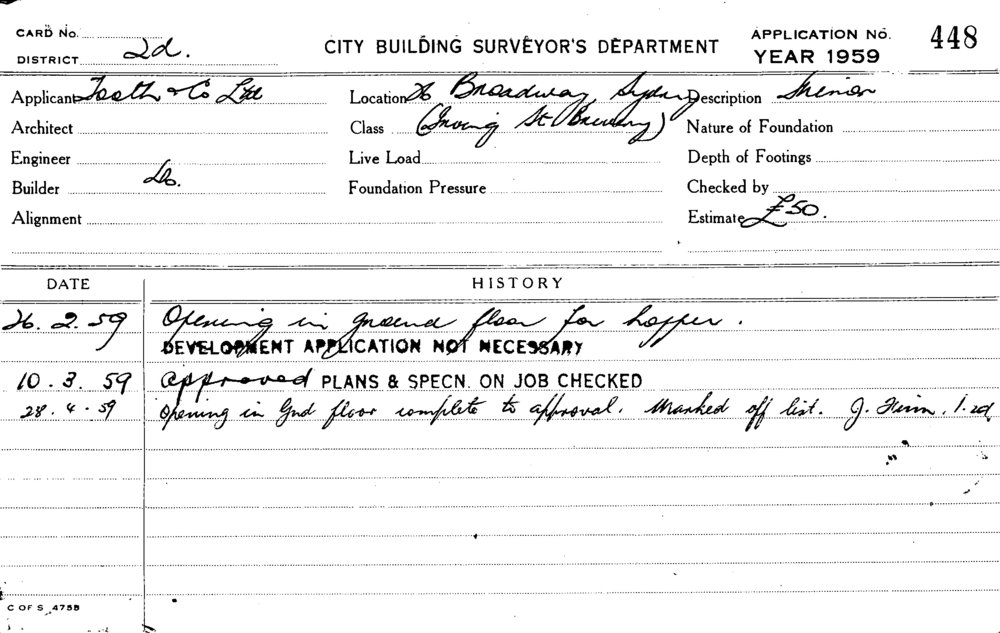 CARD No.
DISTRICT 2d.
CITY BUILDING SURVEYOR'S DEPARTMENT
APPLICATION No. 448
YEAR 1959
Applicant Tooth & Co Ltd Location 26 Broadway, Sydney Description Minor
Architect Class (Irving St Brewery) Nature of Foundation
Engineer Live Load Depth of Footings
Builder Do. Foundation Pressure Checked by
Alignment Estimate £50.
DATE HISTORY
26. 2. 59 Opening in ground floor for hopper.
DEVELOPMENT APPLICATION NOT NECESSARY
10. 3. 59 Approved PLANS & SPECN. ON JOB CHECKED
28. 4. 59 Opening in Gnd floor complete to approval. Marked off list. J.
C OF S 4755